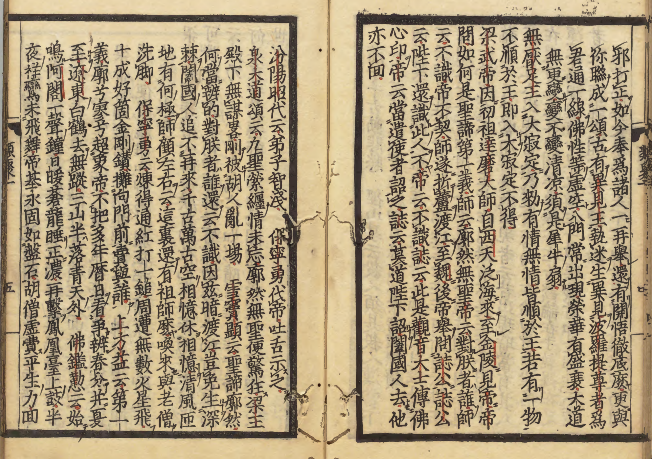 邪打正如今奉爲諸人一一再擧還有開悟徹底底麼更與
祢聯成一頌古有異見王執迷生異見波羅提尊者爲
君通一線佛性等虛空八門常出現榮華有盛衰大道
無更變變不變清凉須是犀牛扇
無厭足王入大寂定乃物有情無情皆順於王若有一物
不順於王即入大寂定不得
梁武帝因初祖達磨大師自西天泛海來至金陵見帝帝
問如何是聖諦第一義師云廓然無聖帝云對朕者誰師
云不識帝不契師遂折蘆渡江至魏後帝擧問誌公誌公
云陛下還識此人不帝云不識誌云此是觀音大士傳佛
心印帝云當遣使者詔之誌云莫道陛下詔闔國人去他
亦不回
汾陽昭代云弟子智淺 保寧勇代帝吐舌示之
泉大道頌云九聖縈纏情未忘廓然無聖便驚狂梁王
殿下無謀畧剛被胡人亂一場 雪竇顯云聖諦廓然
何當辨的對朕者誰還云不識因茲暗渡江豈免生深
棘闔國人追不再來千古萬古空相憶休相憶清風匝
地有何極師顧左右云這裏還有祖師麼喚來與老僧
洗脚 保寧勇云煉得通紅打一鎚周遭無數火星飛
十成好箇金剛鑽攤向門前賣與誰 上方益云第一
義廓寥寥超東帝不把多年曆日看爭辨春
至遼東白鶴去無蹤三山半落青天外 佛鑑懃云始
鳴阿閣一聲鐘日暖蒼龍睡正濃再擊鳳凰臺上鼓半
夜祥鸞未飛舞帝基永固如盤石胡僧虛費平生力面